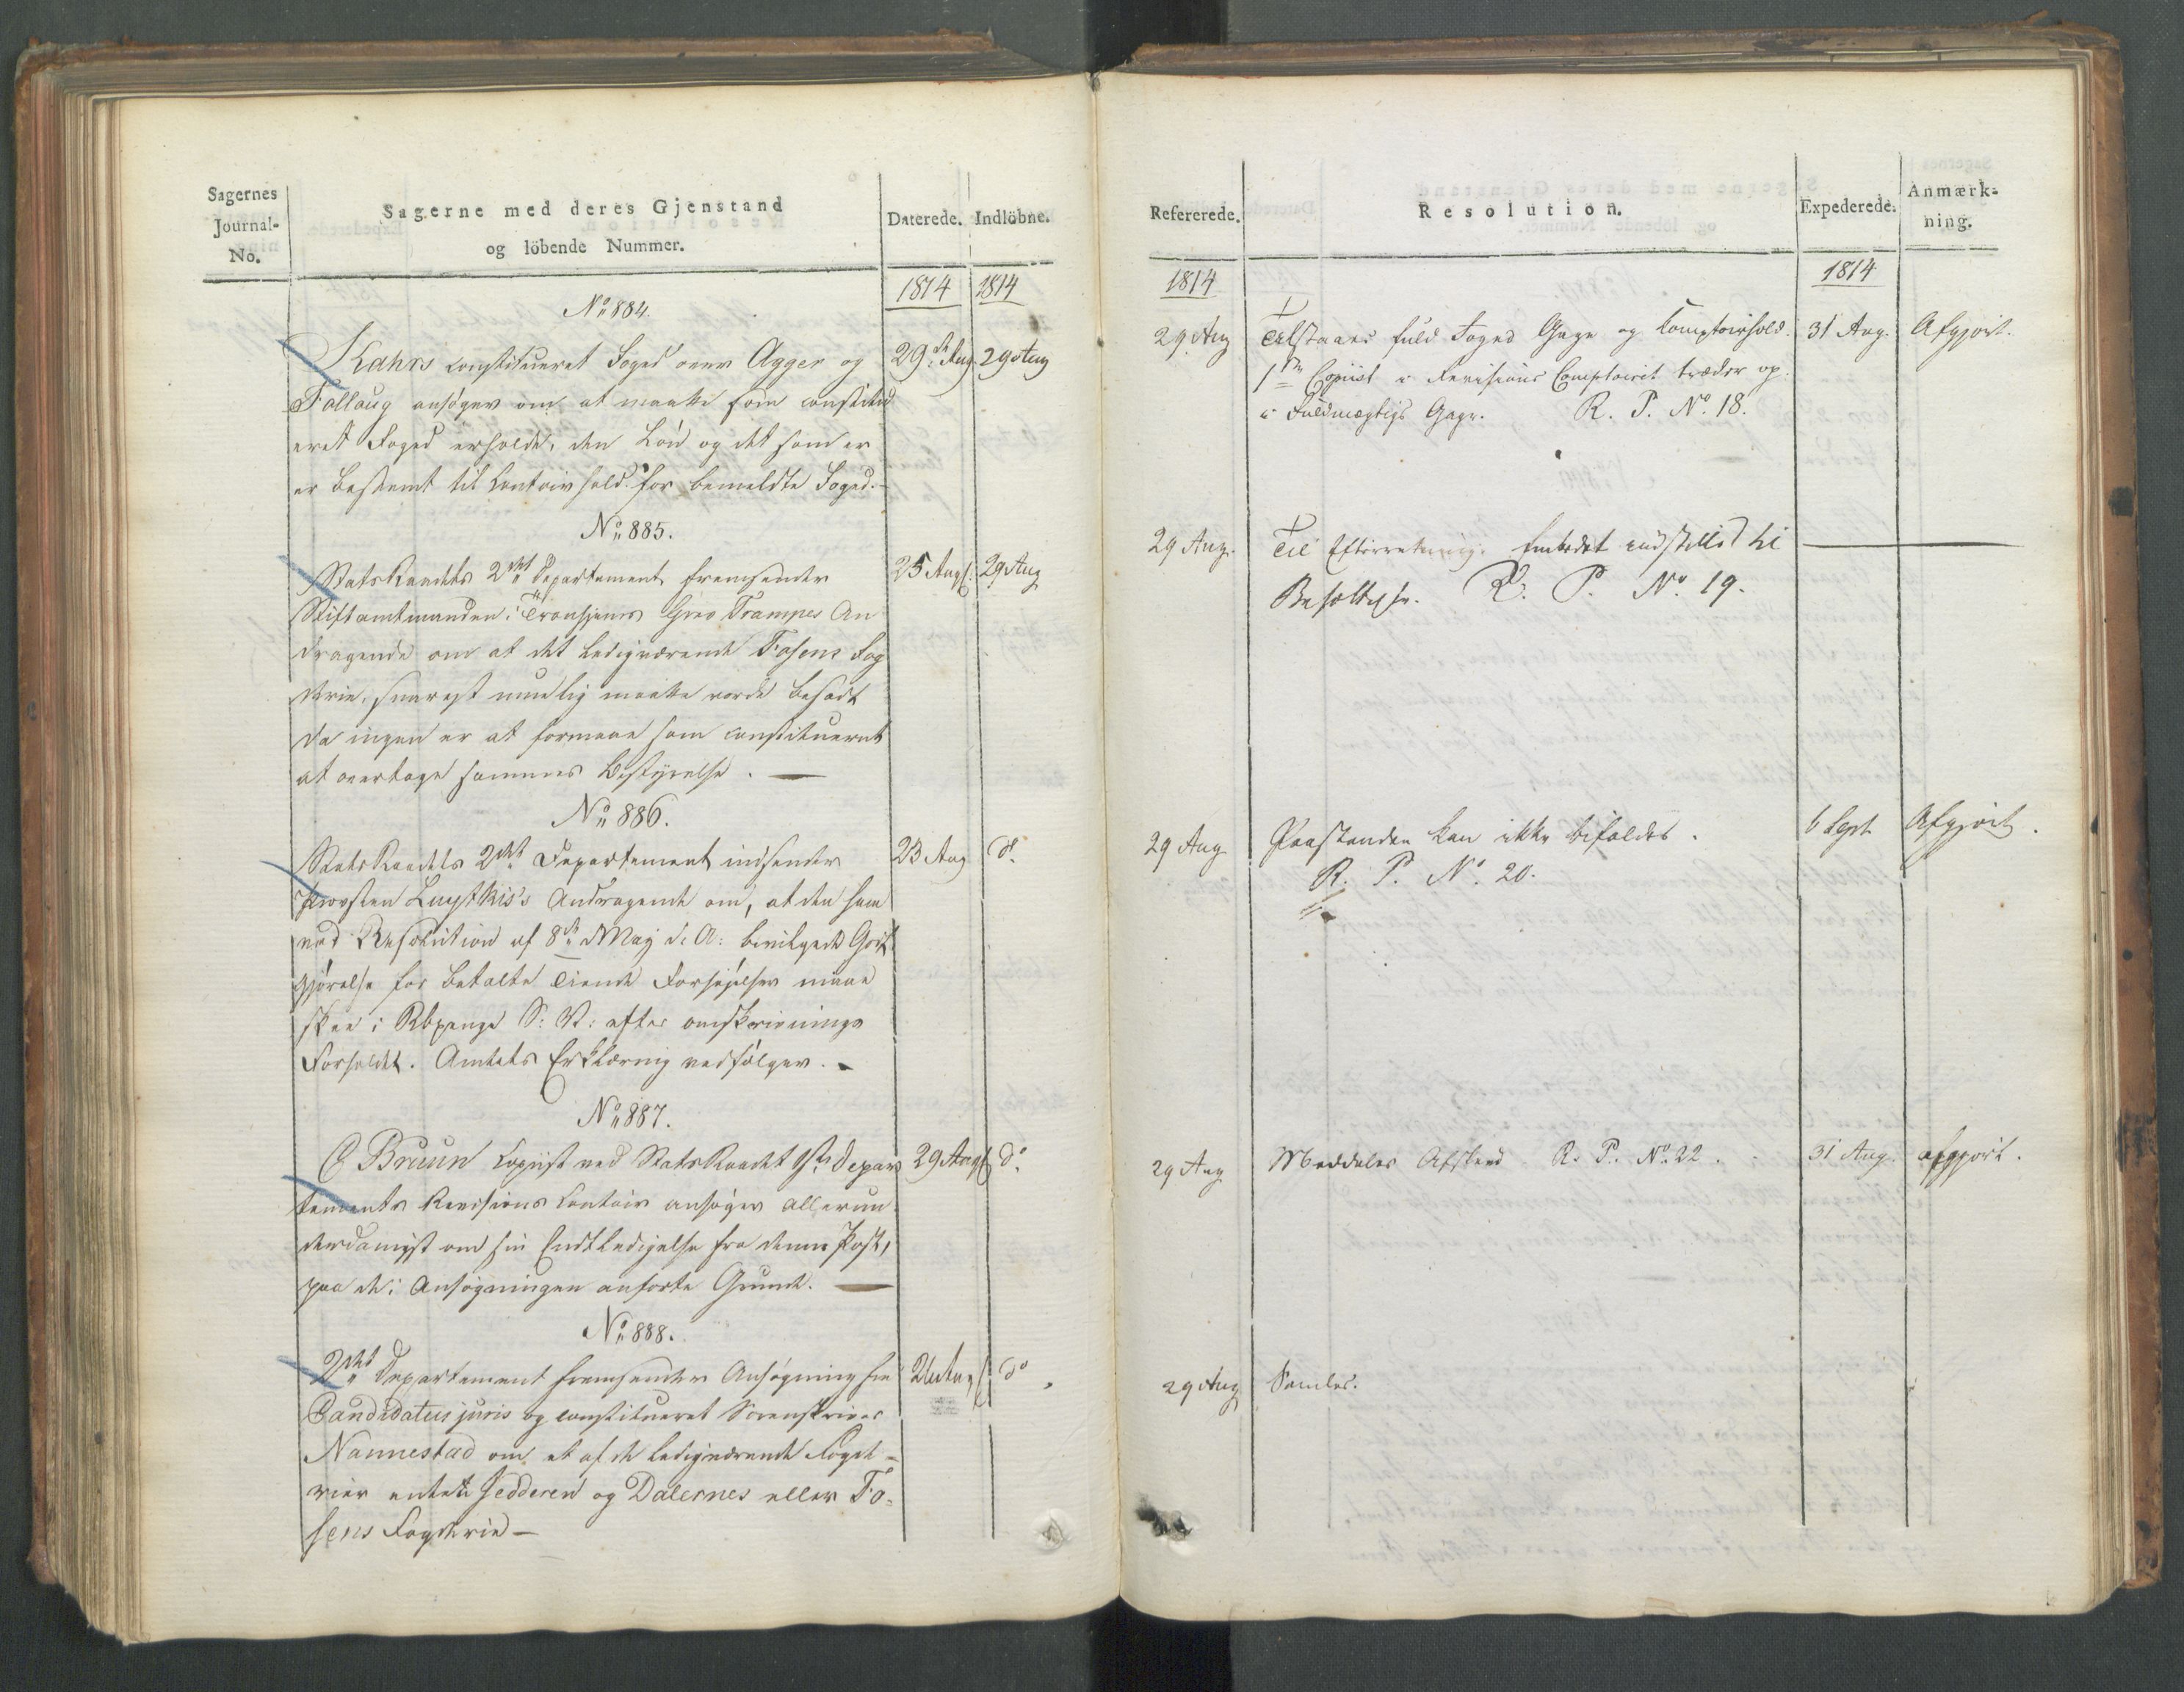 Sagernes
Journal-
No.
Sagerne med deres Gjenstand
og löbende Nummer.
Daterede.
Indlöbne.
1814
1814
No 884.
Kahrs constitueret Foged over Agger og
Follaug ansøger om at maatte som constitu
eret Foged erholde, den Løn og det som er
er bestemt til Contoirhold for bemeldte Foged.
29de Aug.
29 Aug
No 885.
StatsRaadets 2det Departement fremsender
Stiftamtmanden i Tronhjems Grev Trampes An
dragende om at det ledigværende Fosens Fog
derie, snarest muelig maatte vorde besadt
da ingen er at formaae som constitueret
at overtage sammes Bestyrelse. —
25 Aug
29 Aug
No 886.
StatsRaadets 2det Departement indsender
Provsten Andragende om, at den ham
ved Resolution af 8de Maj d: A: bevilgede Godt
gjørelse for betalte Tiende Forhøjelser maae
skee i Rbpenge S: V: efter omskrivnings
Forholdet. Amtets Erklæring vedfølger. –
23 Aug
do
No 887.
C Bruun Copiist ved StatsRaadet 1ste Depar
tements Revisions Contoir ansøger allerun
derdanigst om sin Endtledigelse fra denne Post,
paa de i Ansøgningen anførte Grunde. —
29 Aug
do
No 888.
2det Departement fremsender Ansøgning fra
Candidatus juris og constitueret Sorenskriver
Nannestad om et af de ledigværende Foget-
rier enten Jedderen og Dalernes eller Fo-
sens Fogderie —
Aug
do
Refererede.
Resolution.
Expederede.
Anmærk-
ning.
1814
1814
29 Aug
Tilstaaes fuld Foged Gage og Comptoirhold.
1ste Copiist i Revisions Comptoirit træder op
i Fuldmægtigs Gage. R. P. No. 18.
31 Aug.
Afgjort.
29 Aug.
Til Efterretning. Embedet indstilles til
Besættelse. R. P. No. 19.
29 Aug
Paastanden kan ikke bifaldes.
R. P. No. 20.
6 Sept
Afgjort.
29 Aug
Meddeles Afsked R. P. No. 22.
31 Aug.
afgjort.
29 Aug
Samles.